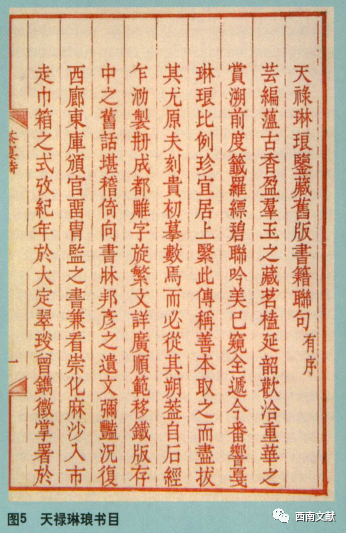 天祿琳琅鑒藏舊版書籍聯句 有序
芸編薀古香盈羣玉之藏茗榼延韶歡洽重華之
賞溯前度籤羅縹碧聯吟美已窺全遞今番響戞
琳琅比例珍宜居上繄此傳稱善本取之而盡拔
其尤原夫刻貴初摹數馬而必從其朔葢自石經
乍泐製册成都雕字旋繁文詳廣順範移鐵版存
中之舊話堪稽倚向書牀邦彥之遺文彌豔況復
西廊東庫頒官畱冑監之書兼看崇化麻沙入市
走巾箱之式攷紀年於大定翠琰曾鐫徵掌署於
一
图5 天禄琳琅书目
西南文献